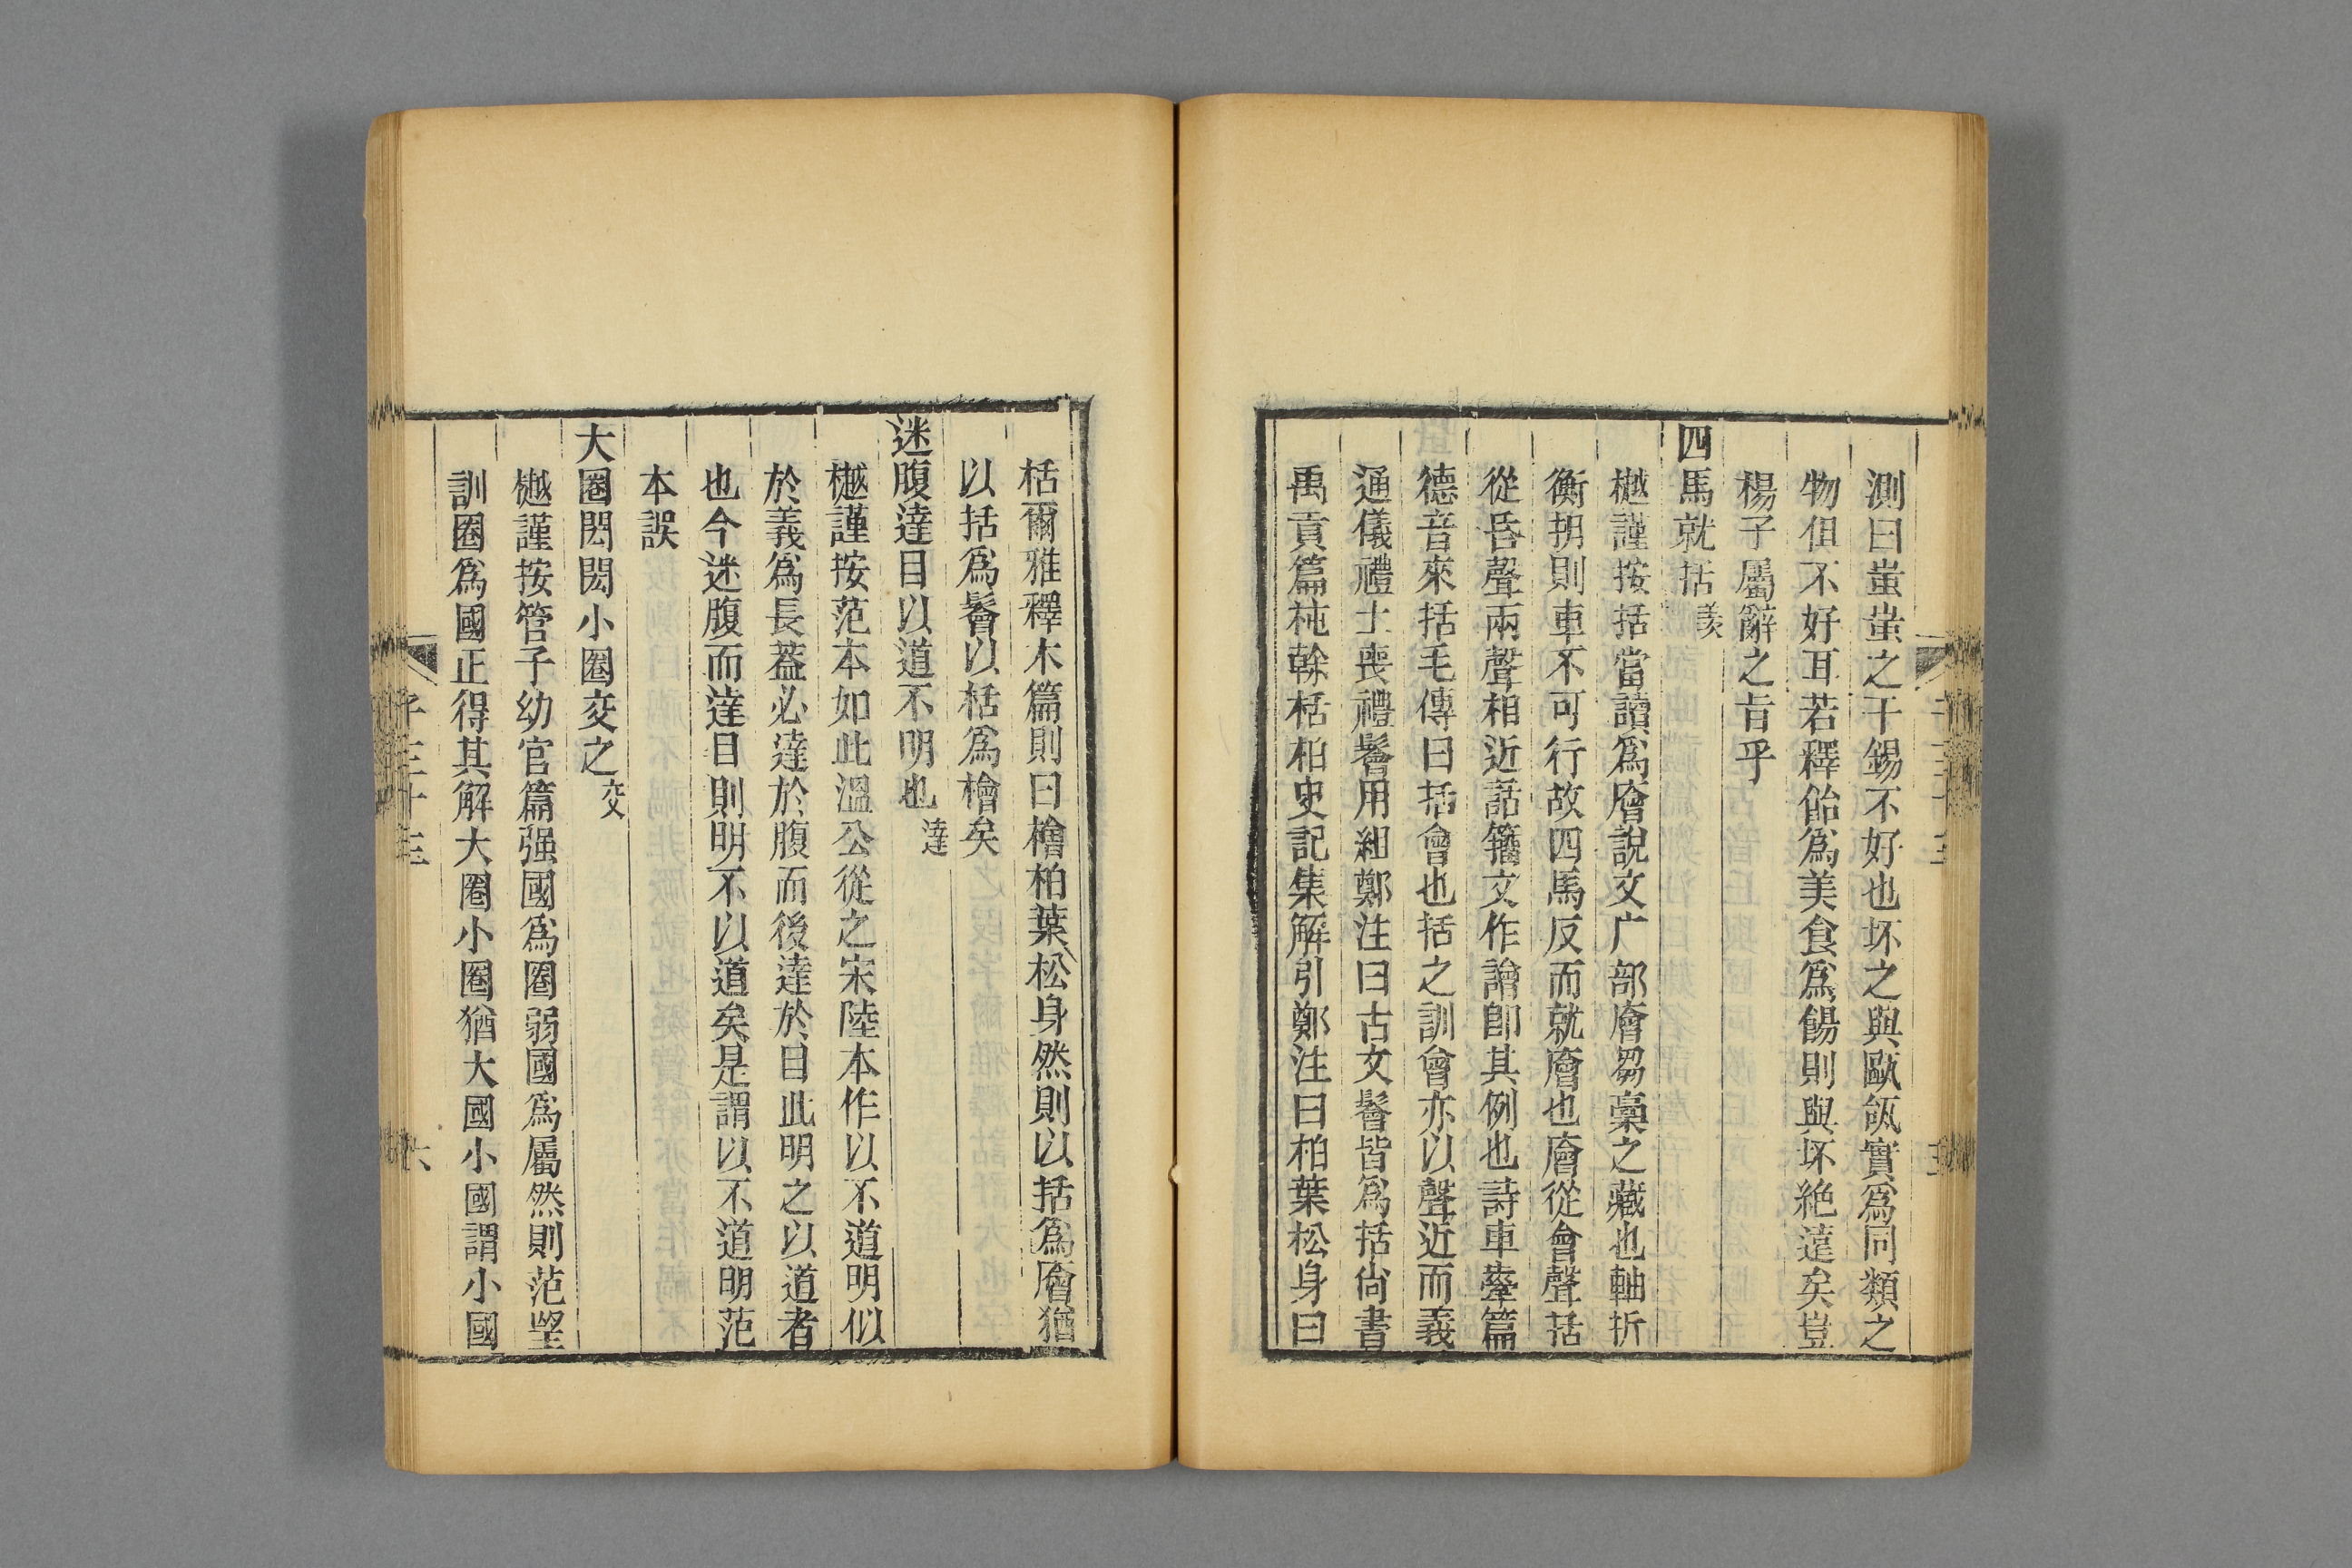 測曰蚩蚩之干錫不好也坏之與甌瓴實爲同類之
物但不好耳若釋飴爲美食爲餳則與坏絶遠矣豈
楊子屬辭之旨乎
四馬就括羨
樾謹按括當讀爲廥說文广部廥芻稾之藏也軸折
衡抈則車不可行故四馬反而就廥也廥從會聲括
從昏聲兩聲相近話籀文作譮卽其例也詩車舝篇
德音來括毛傳曰括會也括之訓會亦以聲近而義
通儀禮士喪禮鬠用組鄭注曰古文鬠皆爲括尙書
禹貢篇杶榦栝柏史記集解引鄭注曰柏葉松身曰
栝爾雅釋木篇則曰檜柏葉松身然則以括爲廥猶
以括爲鬠以栝爲檜矣
迷腹達目以道不明也達
樾謹按范本如此溫公從之宋陸本作以不道明似
於義爲長葢必達於腹而後達於目此明之以道者
也今迷腹而達目則明不以道矣是謂以不道明范
本誤
大圈閎閎小圈交之交
樾謹按管子幼官篇强國爲圈弱國爲屬然則范望
訓圈爲國正得其解大圈小圈猶大國小國謂小國
子三十三
六